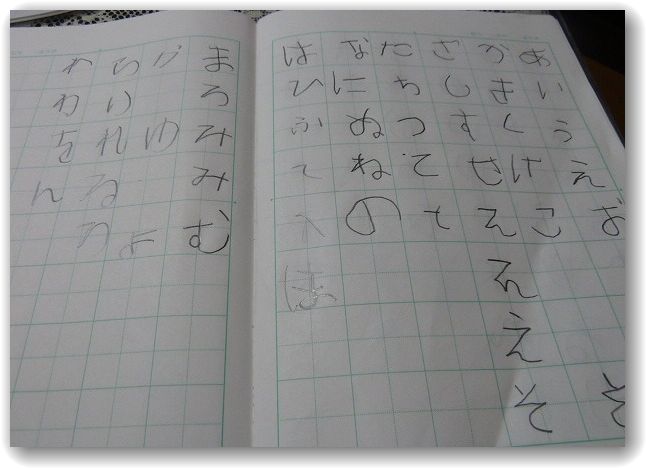 あいうえお
そ
かきくけこ
さしすせええええそ
たちつてと
なにぬねの
はひふてへほ
まろみみむ
かゆよ
らりれるろ
わわをん